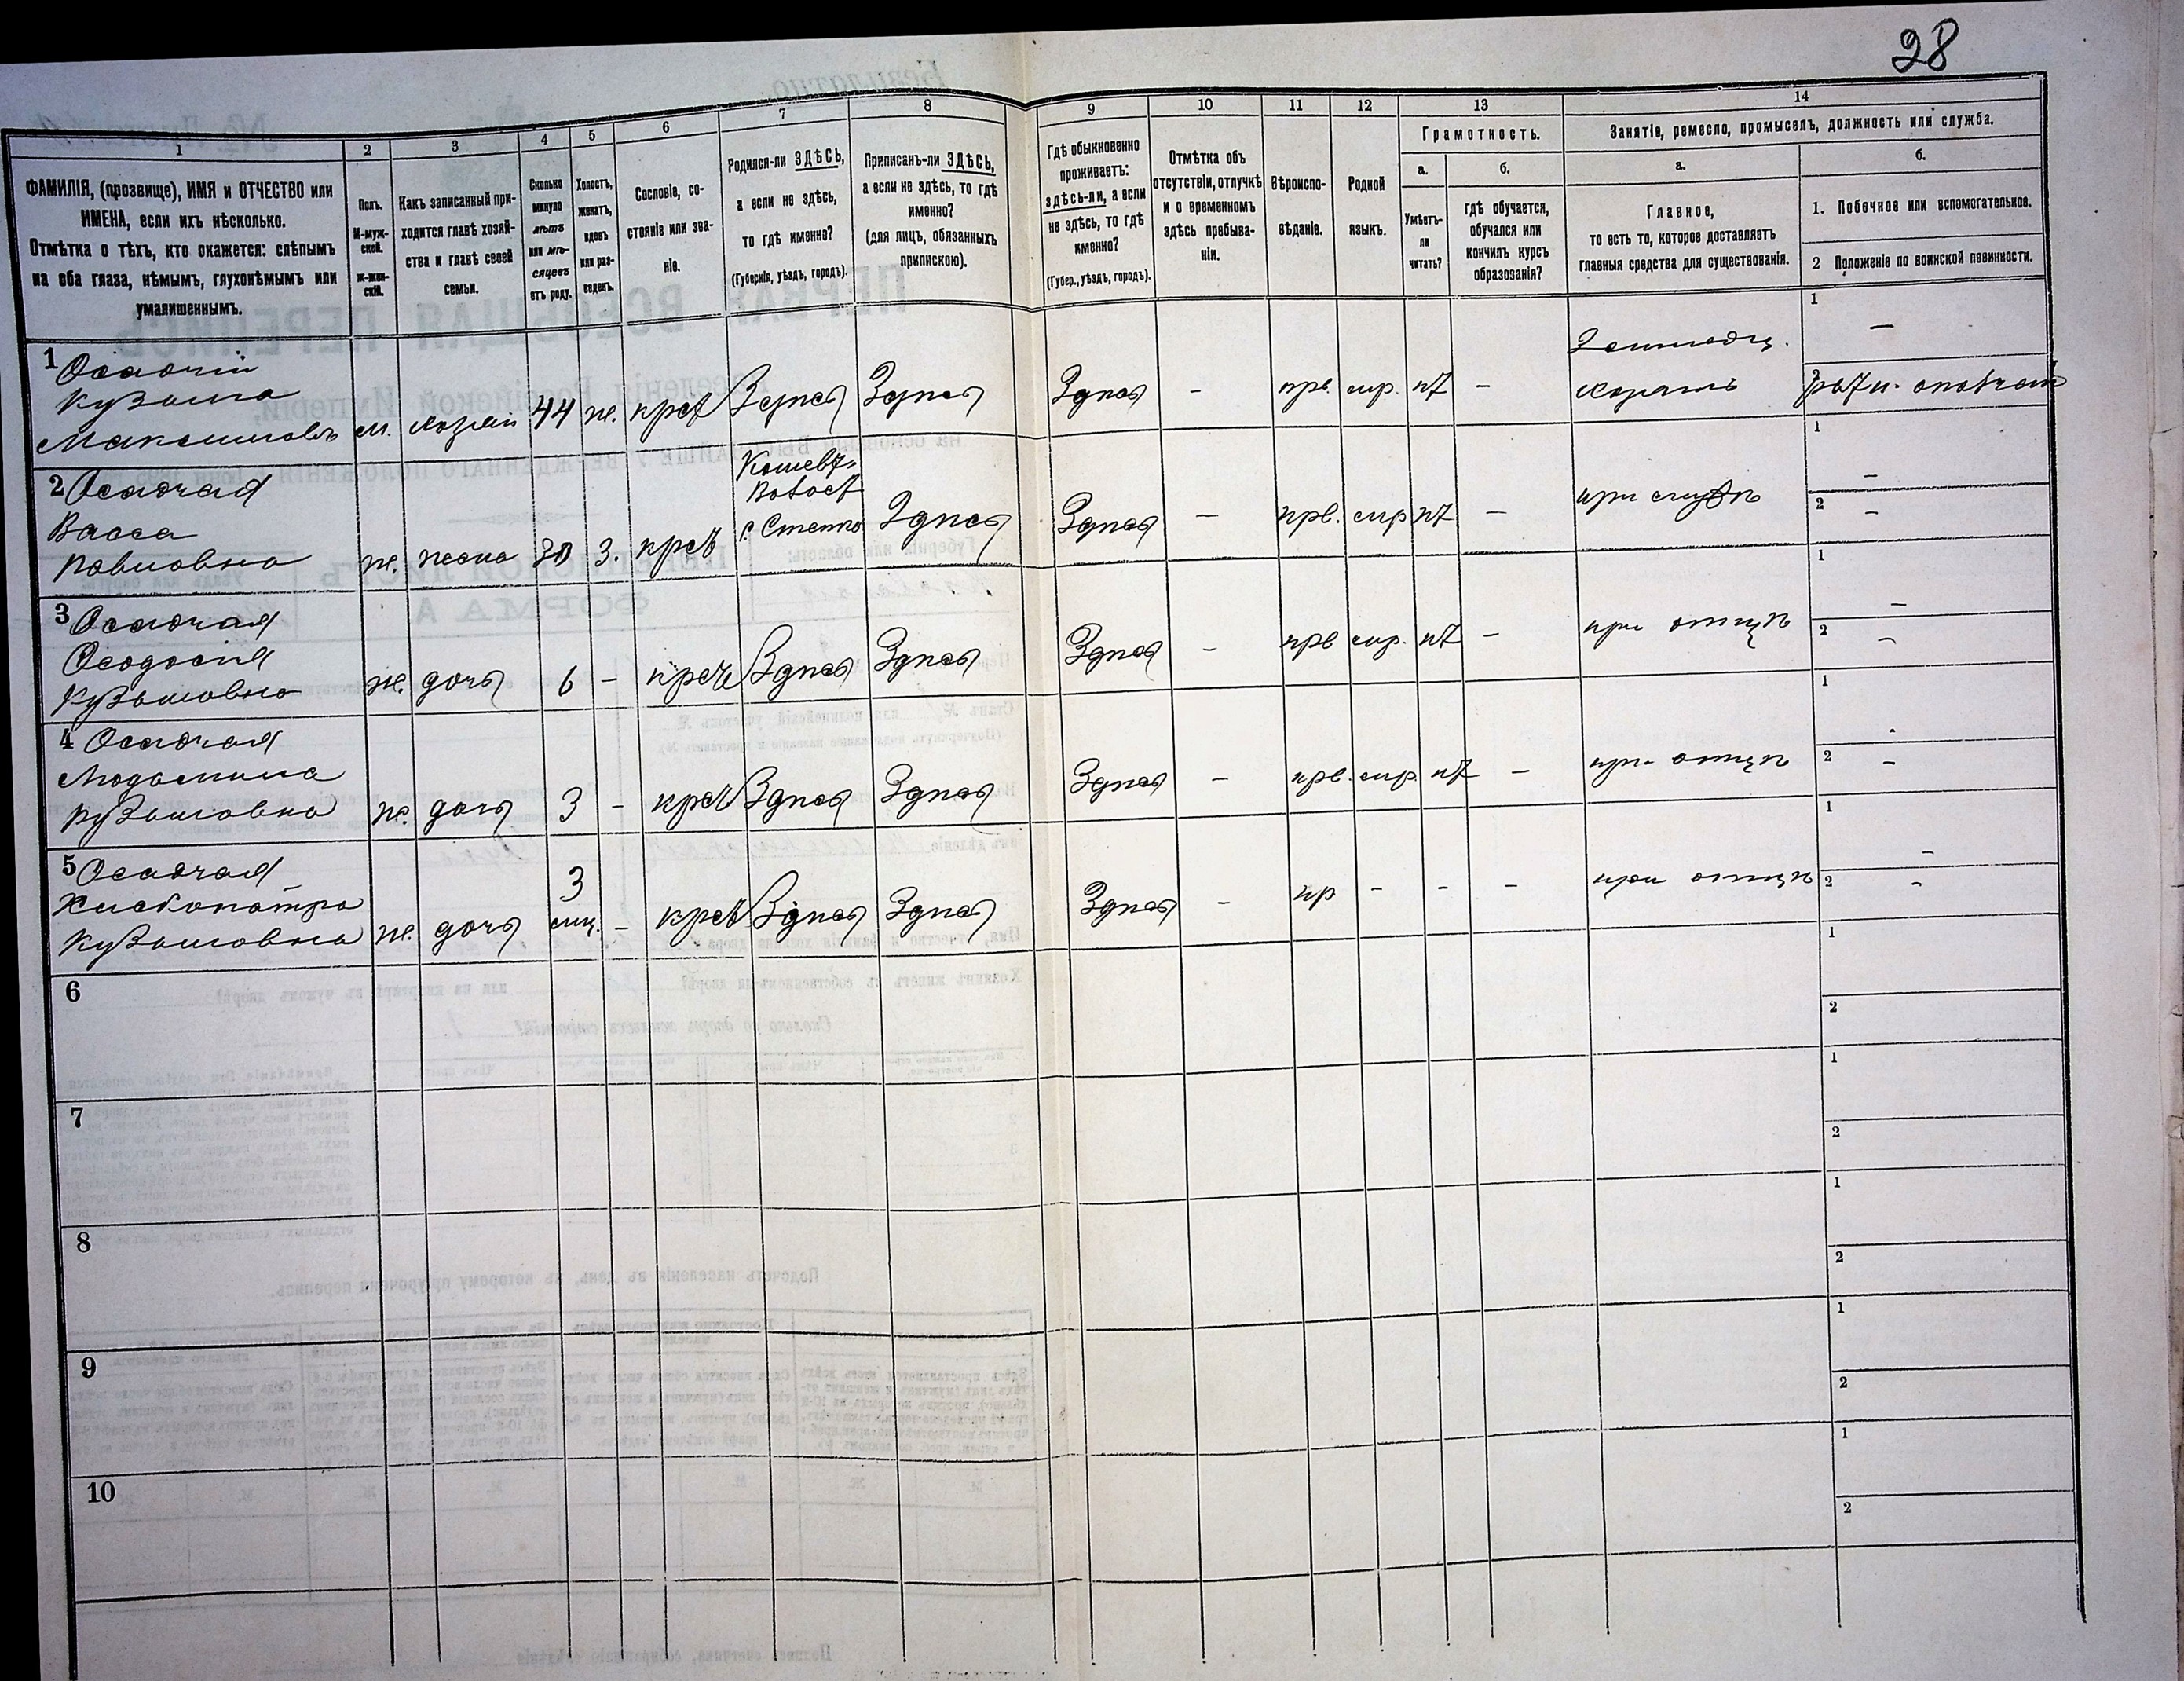 28
1
2
3
4
5
6
7
8
9
10
11
12
13
14
ФАМИЛІЯ, (прозвище), ИМЯ и ОТЧЕСТВО или
ИМЕНА, если ихъ нѣсколько.
Отмѣтка о тѣхъ, кто окажется: слѣпымъ
на оба глаза, нѣмымъ, глухонѣмымъ или
умалишеннымъ.
Полъ.
М-муж-
ской.
Ж-жен-
скій.
Какъ записанный при-
ходится главѣ хозяй-
ства и главѣ своей
семьи.
Сколько
минуло
лѣтъ
или мѣ-
сяцевъ
отъ роду.
Холостъ,
женатъ,
вдовъ
или раз-
веденъ.
Сословіе, со-
стояніе или зва-
ніе.
Родился-ли ЗДѢСЬ,
а если не здѣсь,
то гдѣ именно?
(Губернія, уѣздъ, городъ).
Приписанъ-ли ЗДѢСЬ,
а если не здѣсь, то гдѣ
именно?
(для лицъ, обязанныхъ
припискою).
Гдѣ обыкновенно
проживаетъ:
здѣсь-ли, а если
не здѣсь, то гдѣ
именно?
(Губер., уѣздъ, городъ).
Отмѣтка объ
отсутствіи, отлучкѣ
и о временномъ
здѣсь пребыва-
ніи.
Вѣроиспо-
вѣданіе.
Родной
языкъ.
Грамотность.
а.
Умѣетъ-
ли
читать?
б.
гдѣ обучается,
обучался или
кончилъ курсъ
образованія?
Занятіе, ремесло, промыселъ, должность или служба.
а.
Главное,
то есть то, которое доставляетъ
главныя средства для существованія.
б.
1. Побочное или вспомогательное.
2 Положеніе по воинской повинности.
1 Осадчій
Кузьма
Максимовъ м. хозяи 44 ж. крест Здѣсь Здѣсь Здѣсь - прв. мр. нт -
хозяинъ
1 —
2 ратн. ополчен
2 Осадчая
Васса
Павловна ж. жена 30 З. крест
Волост
Здѣсь Здѣсь — прв. мр нт —
при мужѣ
1 —
2 —
3 Осадчая
Ѳеодосія
Кузьмовна ж. дочь 6 - крест Здѣсь Здѣсь Здѣсь - прв мр. нт -
при отцѣ
1 —
2 —
4 Осадчая
Людмила
Кузьмовна ж. дочь 3 - крест Здѣсь Здѣсь Здѣсь - прв. мр. нт -
при отцѣ
1 -
2 —
5 Осадчая
Клеопатра
Кузьмовна ж. дочь 3 мц. - крест Здѣсь Здѣсь Здѣсь - пр - - -
при отцѣ
1 —
2 -
6
1
2
7
1
2
8
1
2
9
1
2
10
1
2